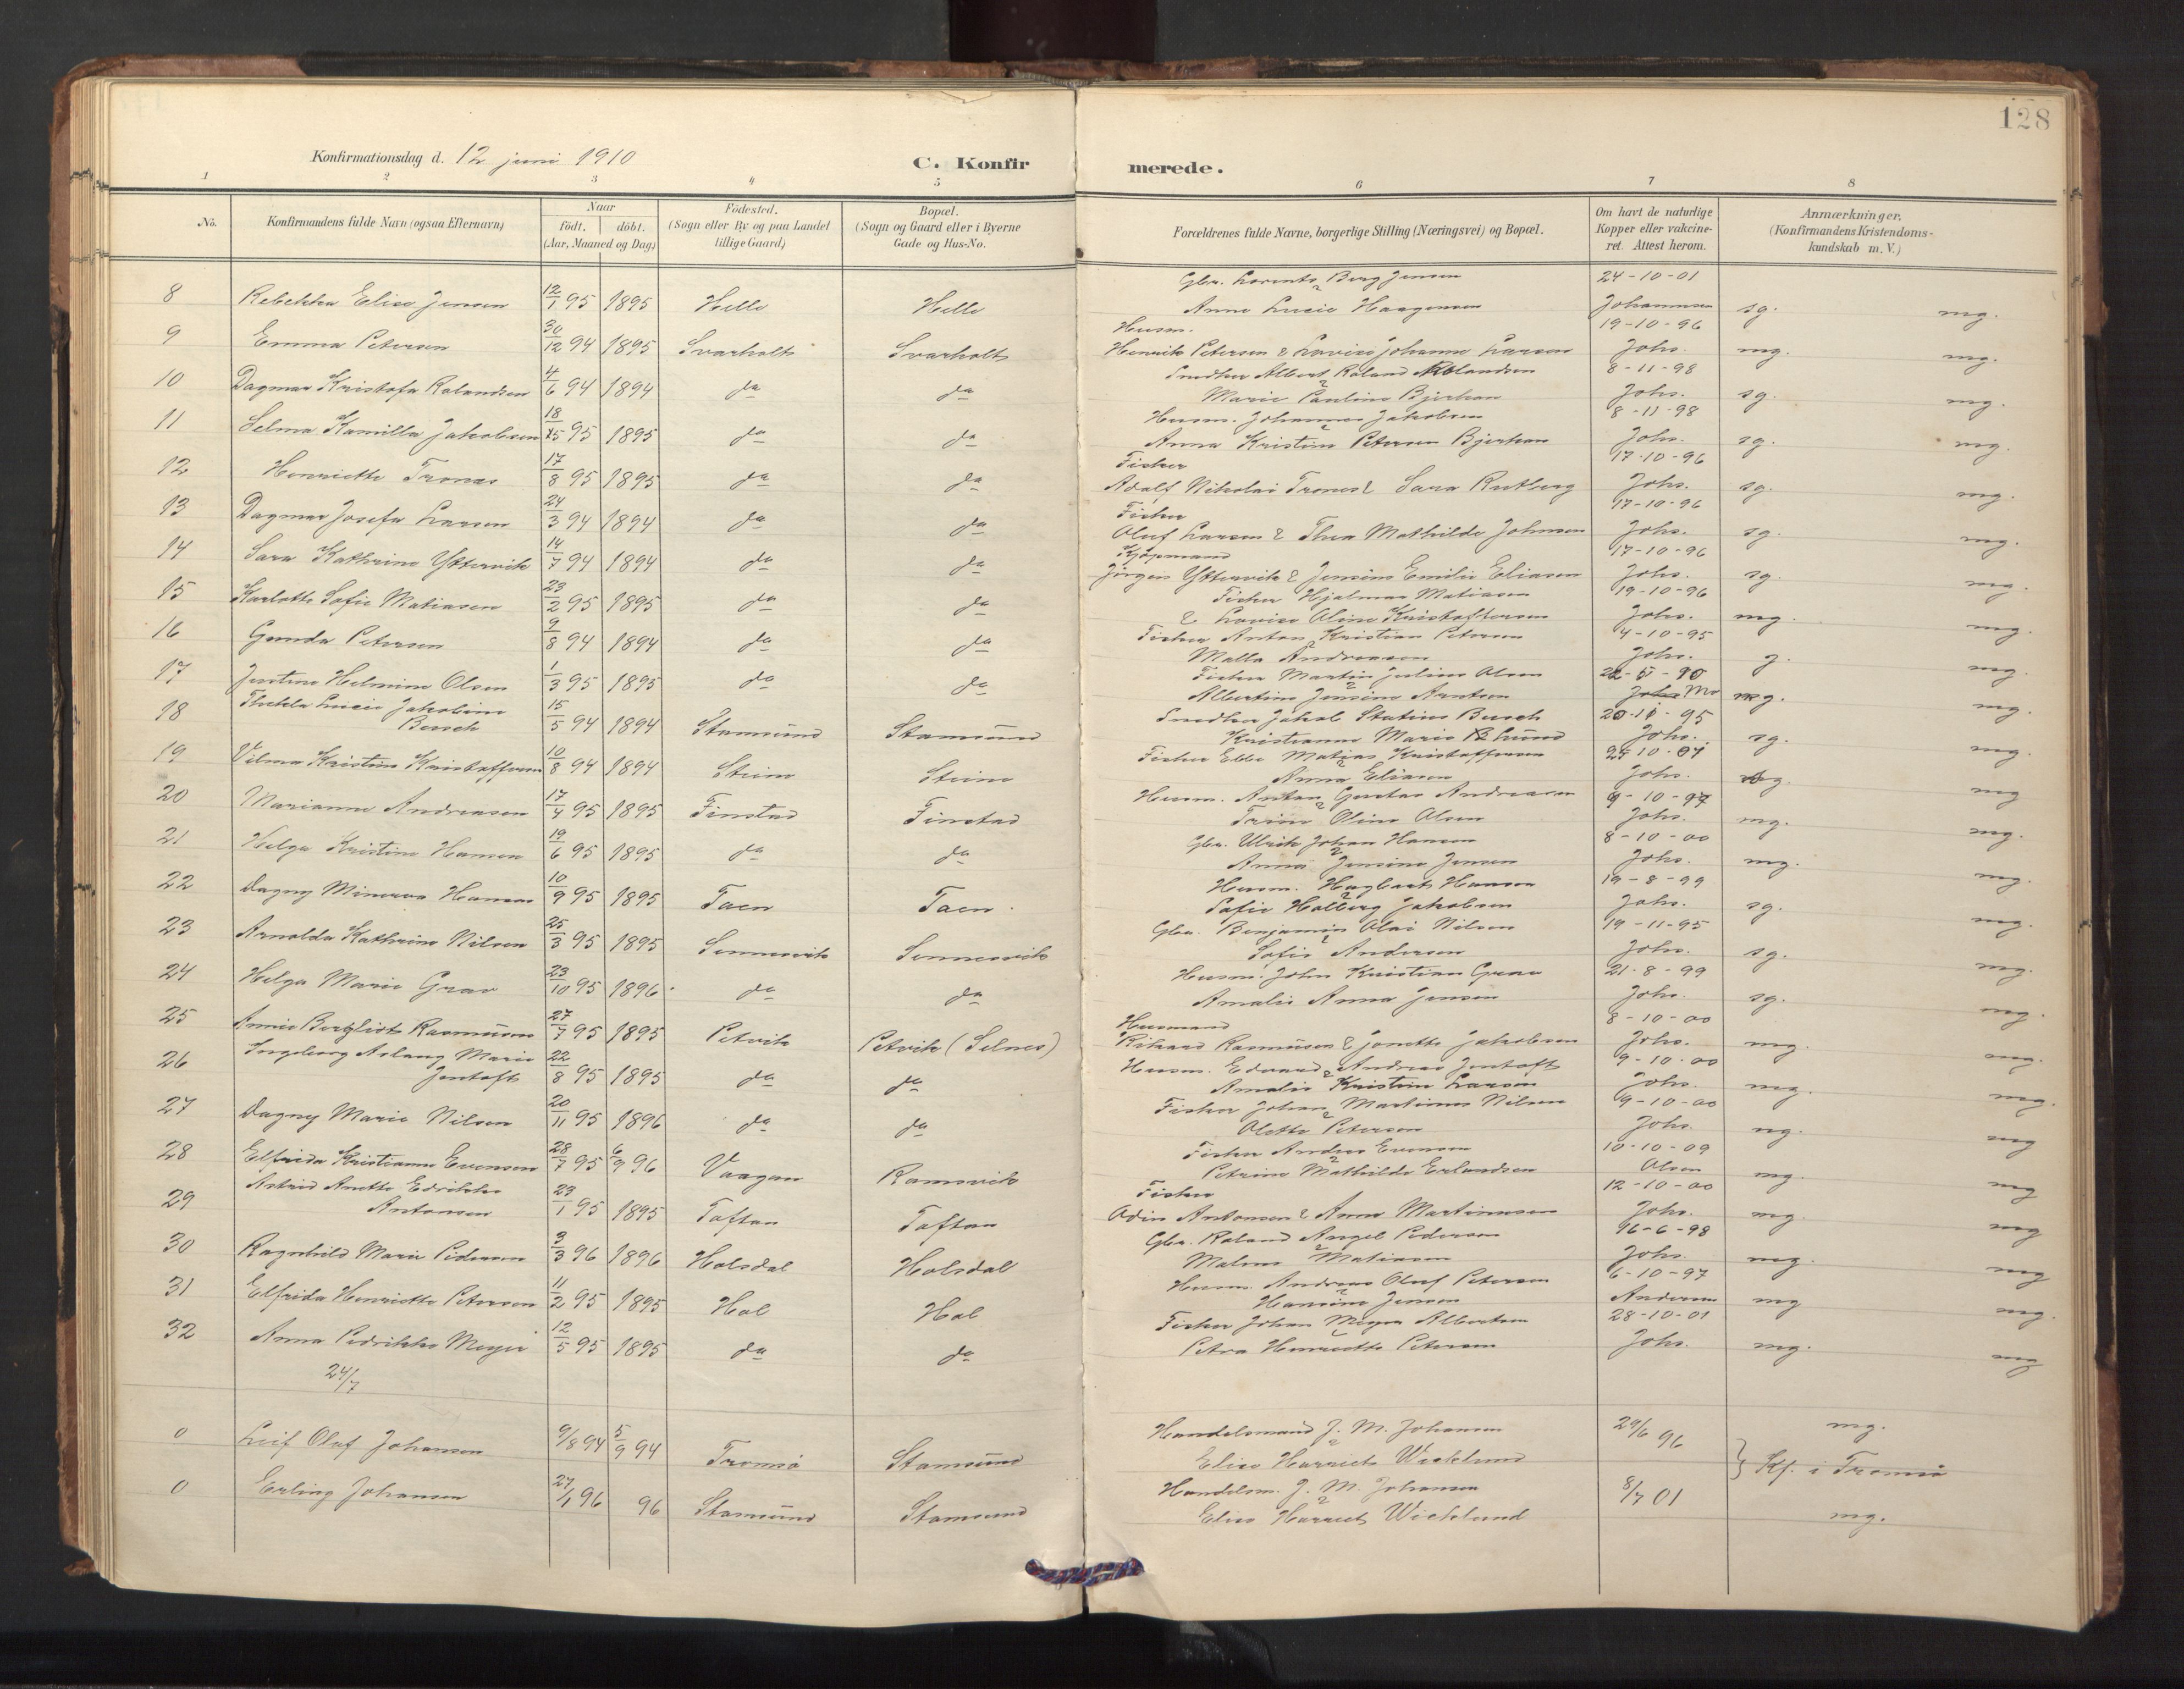 128
Konfirmationsdag d. 12 juni 1910
C. Konfirmerede.
1 2 3 4 5 6 7 8
No.
Konfirmandens fulde Navn (ogsaa Efternavn)
Naar
födt. döbt.
(Aar, Maaned og Dag)
Födested.
(Sogn eller By og paa Landet
tillige Gaard)
Bopæl.
(Sogn og Gaard eller i Byerne
Gade og Hus-No.
Forældrenes fulde Navne, borgerlige Stilling (Næringsvei) og Bopæl.
Om havt de naturlige
Kopper eller vakcine-
ret. Attest herom.
Anmærkninger.
(Konfirmandens Kristendoms-
kundskab m. V.)
Gbr. Lorents Berg Jensen 24-10-01
8 Rebekka Elise Jensen 12/1 95 1895 Helle Helle & Anna Lucie Haagensen Johannesen sg. mg.
Husm. 19-10-96
9 Emma Petersen 30/12 94 1895 Svarholt Svarholt Henrik Petersen & Lovise Johanna Larsen Johs. mg. mg.
Snedker Albert Roland Rolandsen 8-11-98
10 Dagmar Kristofa Rolandsen 4/6 94 1894 da da & Marie Pauline Bjerkan Johs. sg. mg.
Husm. Johannes Jakobsen 8-11-98
11 Selma Kamilla Jakobsen 18/5 95 1895 da da & Anna Kristine Petersen Bjerkan Johs. sg. mg.
Fisker 17-10-96
12 Henriette Tronæs 17/8 95 1895 da da Adolf Nikolai Trones & Sara Rutberg Johs. sg. mg.
Fisker 17-10-96
13 Dagmar Josefa Larsen 24/3 94 1894 da da Oluf Larsen & Thea Mathilde Johnsen Johs. sg. mg.
Kjöpmand 17-10-96
14 Sara Kathrine Yttervik 14/7 94 1894 da da Jörgen Yttervik & Jensine Emilie Eliasen Johs. sg. mg.
Fisker Hjalmar Matiasen 19-10-96
15 Karlotte Sofie Matiasen 23/2 95 1895 da da & Lovise Oline Kristoffersen Johs. mg. mg.
Fisker Anton Kristian Petersen 4-10-95
16 Gunda Petersen 9/8 94 1894 da da & Malla Andreasen Johs. g. mg.
Fisker Martin Julius Olsen
17 Justine Helmine Olsen 1/3 95 1895 da da & Albertine Jensine Arntsen mg.
Thekla Lucie Jakobine
Snedker Jakob Statius Busch 20-11-95
18 Busch 15/5 94 1894 Stamsund Stamsund Kristianne Marie Lund Johs. sg. mg.
Fisker Ebbe Matias Kristoffersen
19 Vilma Kristine Kristoffersen 10/8 94 1894 Steine Steine & Anna Eliasen Johs. mg
Husm. Anton Gustav Andreasen 9-10-97
20 Marianne Andreasen 17/4 95 1895 Finstad Finstad & Trine Oline Olsen Johs. mg. mg.
Gbr. Ulrik Johan Hansen 8-10-00
21 Helga Kristine Hansen 19/6 95 1895 da da & Anna Jensine Jensen Johs. mg. mg.
Husm. Hagbart Hansen 19-8-99
22 Dagny Minerva Hansen 10/9 95 1895 Taen Taen & Sofie Holberg Jakobsen Johs. sg. mg.
Gbr. Benjamin Olai Nilsen 19-11-95
23 Arnolda Kathrine Nilsen 25/3 95 1895 Sennesvik Sennesvik & Sofie Andersen Johs. sg. mg.
Husm. John Kristian Grav 21-8-99
24 Helga Marie Grav 23/10 95 1896 da da Amalie Anna Jensen Johs. sg. mg.
Husmand 8-10-00
25 Annie Bergliot Rasmusen 27/7 95 1895 Petvik Petvik (Selnes) Rikard Rasmusen & Jonette Jakobsen Johs. mg. mg.
Ingeborg Aslaug Marie
Husm. Edvard Andreas Jentoft 9-10-00
26 Jentoft 22/8 95 1895 da da & Amalie Kristine Larsen Johs. mg. mg.
Fisker Johan Martinus Nilsen 9-10-00
27 Dagny Marie Nilsen 20/11 95 1896 da da & Olette Petersen Johs. ng. mg
Fisker Andreas Evensen 10-10-09
28 Elfrida Kristianne Evensen 28/7 95 6/9 96 Vaagan Ramsvik & Petrine Mathilde Erlandsen Olsen mg. mg
Astrid Anette Edrikke
Fisker 12-10-00
29 Antonsen 23/1 95 1895 Toftan Toftan Odin Antonsen & Anna Martinusen Johs. mg. mg
Gbr. Roland Angel Pedersen 16-6-98
30 Ragnhild Marie Pedersen 3/3 96 1896 Holsdal Holsdal & Malene Matiasen Johs. mg. mg
Husm. Andreas Oluf Petersen 6-10-97
31 Elfrida Henriette Petersen 11/2 95 1895 Hol Hol Hansine Jensen Andersen mg mg.
Fisker Johan Meyer Albertsen 28-10-01
32 Anna Pedrikke Meyer 12/5 95 1895 da da & Petra Henriette Petersen Johs. mg. mg
24/7
0 Leif Olaf Johansen 9/8 94 5/9 94 Tromsö Stamsund Handelsmand J. M. Johansen 29/6 96 mg.
& Elise Harriet Wicklund
} Kf. i Tromsö
0 Erling Johansen 27/1 96 96 Stamsund Stamsund Handelsm. J. M. Johansen 8/7 01
& Elise Harriet Wicklund mg.